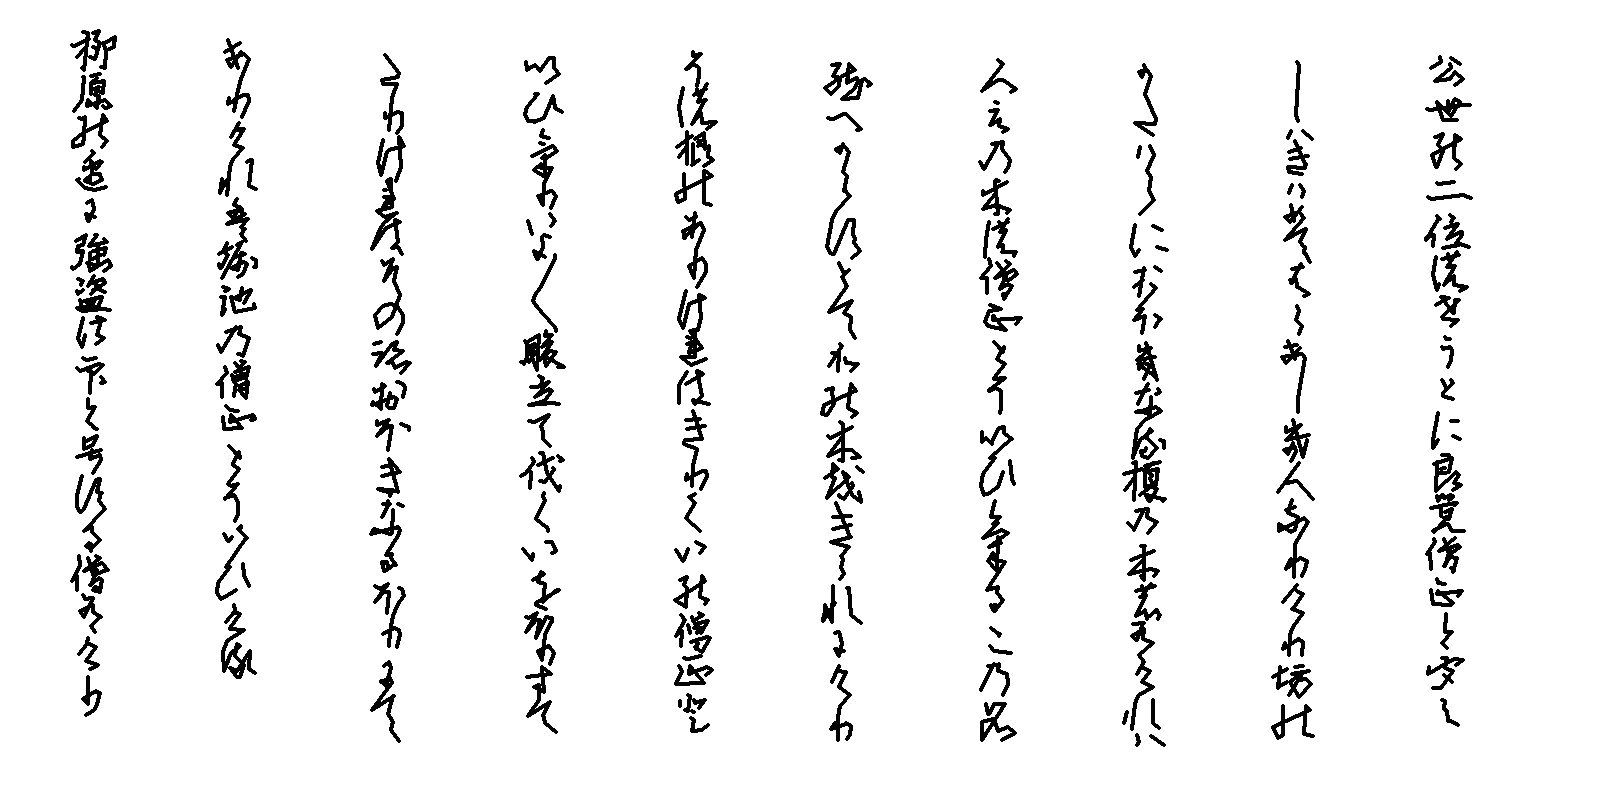 公世の二位のせうとに良覚僧正と聞え
しハきハめてはらあしき人なりけり坊の
かたハらにおほきなる榎の木のありけれハ
人えの木の僧正とそいひけるこの名
然へからすとてかの木をきられにけり
その根のありけれはきりくいの僧正と
いひけりいよ〱腹立て伐くいを堀すて
たりけれはその跡おほきなるほりにて
ありけれは堀池の僧正とそいひける
柳原の辺に強盗法印と号する僧ありけり